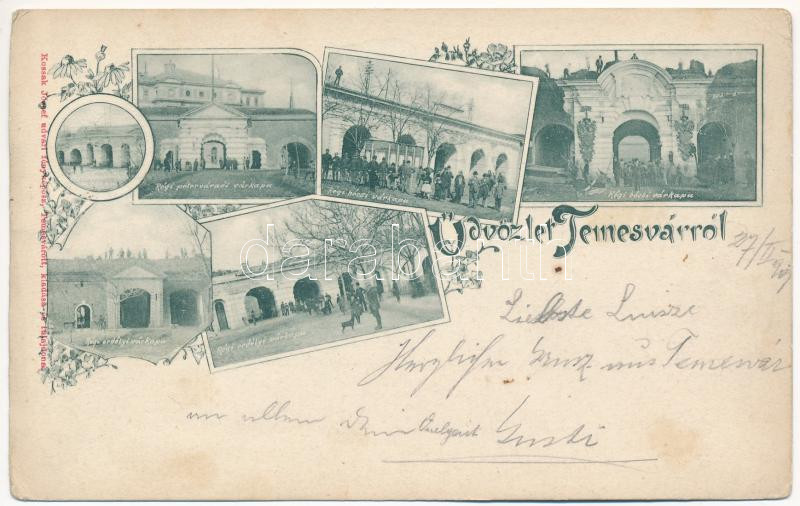 Régi péterváradi várkapu
Régi bécsi várkapu
Régi bécsi várkapu
Régi erdélyi várkapu
Régi erdélyi várkapu
Üdvözlet Temesvárról
Kossak József udvari fényképész, Temesvárott, kiadása és tulajdona.
27/
Liebste Luise
Herzlichen Gruss aus Temesvár
an allen
Gusti
darabanth.com